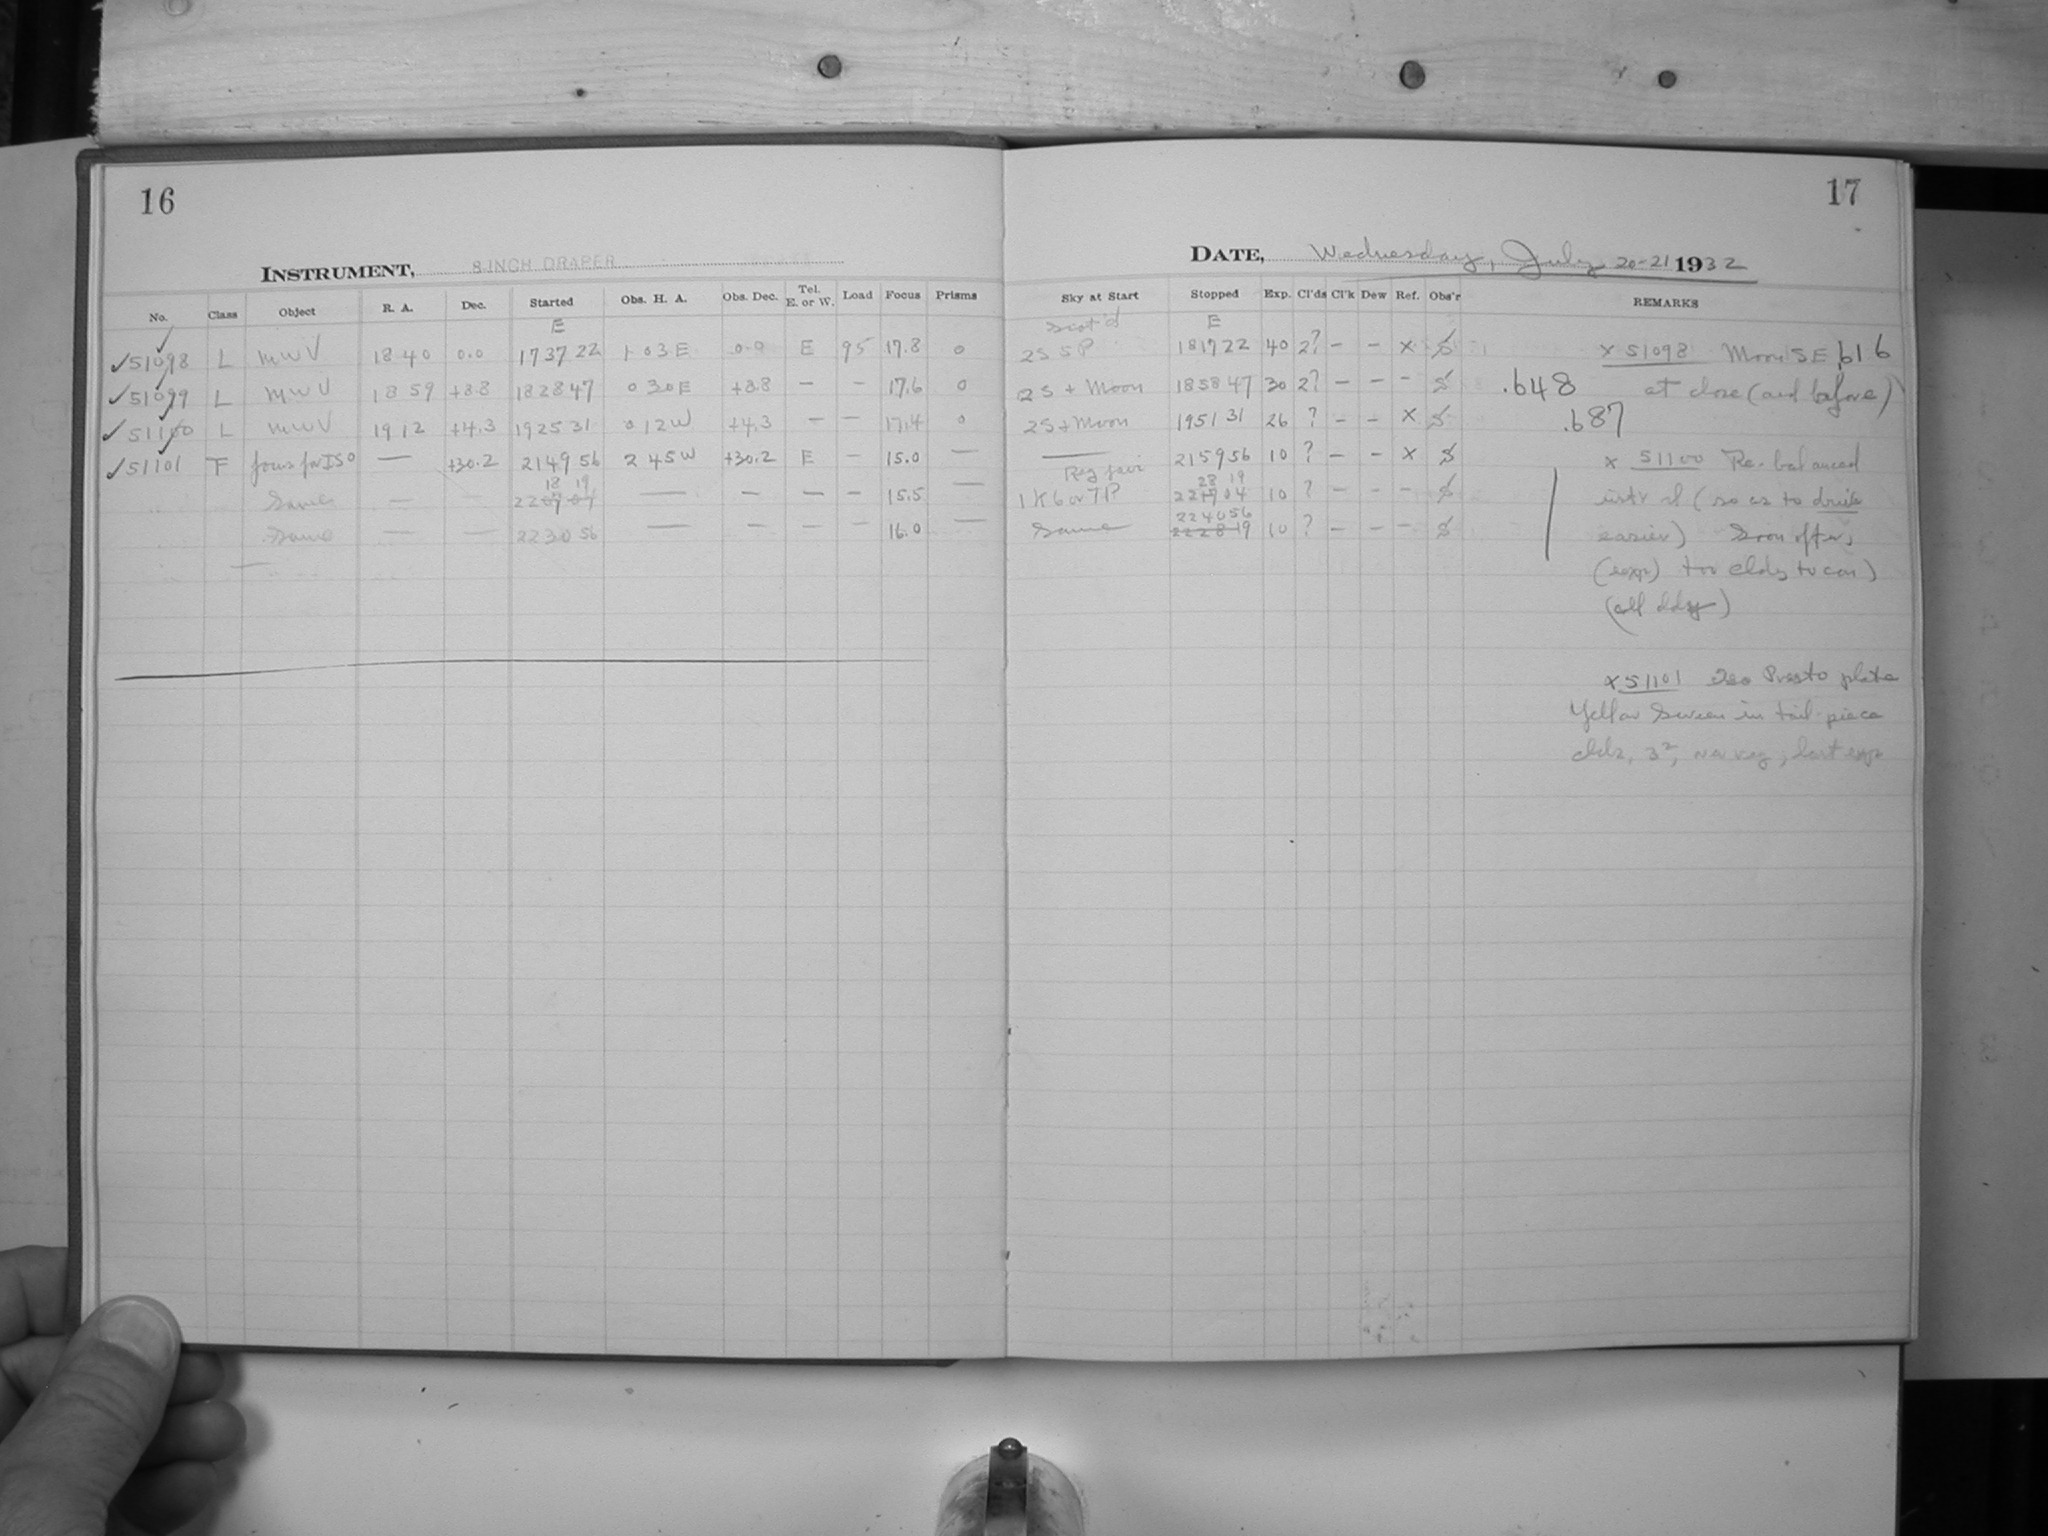 16
17
INSTRUMENT, 8 INCH DRAPER
DATE, Wednesday, July 20-21 1932
No. Class Object R. A. Dec. Started Obs. H. A. Obs. Dec. Tel. E. or W. Load Focus Prisms Sky at Start Stopped Exp. Cl'ds Cl'k Dew Ref. Obs'r REMARKS
E E
✓51098 L MWV 18 40 0.0 17 37 22 1 03 E 0.0 E 95 17.8 0 2S SP 18 17 22 40 2? – – x x 51098 Moon SE .616
✓51099 L MWV 18 59 +3.8 18 28 47 0 30 E +3.8 – – 17.6 0 2S + Moon 18 58 47 30 2? – – – .648 at close (and before)
✓51100 L MWV 19 12 +4.3 19 25 31 0 12 W +4.3 – – 17.4 0 2S + Moon 19 51 31 26 ? – – x .687
✓51101 F focus for ISO — +30.2 21 49 56 2 45 W +30.2 E – 15.0 — — 21 59 56 10 ? – – x x 51100 Re-balanced
18 19 28 19
Same — — 22 07 04 — — – – 15.5 — 1K6 or 7P 22 17 04 10 ? – – – (so as to drive
22 40 56
Same — — 22 30 56 — — – – 16.0 — Same 22 28 19 10 ? – – – easier) Soon after
(exp) too cldy to
x 51101 Iso Presto plate
Yellow Screen in tail-piece
last exp